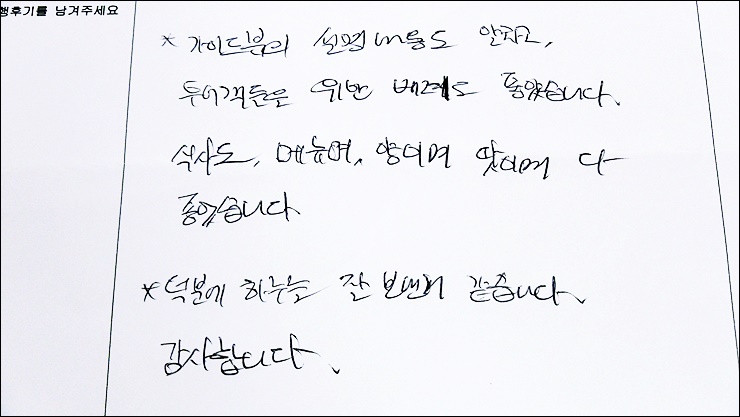 행후기를 남겨주세요
* 가이드분의 설명 내용도 알차고,
투어객들은 위한 배려도 좋았습니다.
식사도, 메뉴며, 양이며 맛이며 다
좋았습니다
* 덕분에 하루를 잘 보낸거 같습니다.
감사합니다.